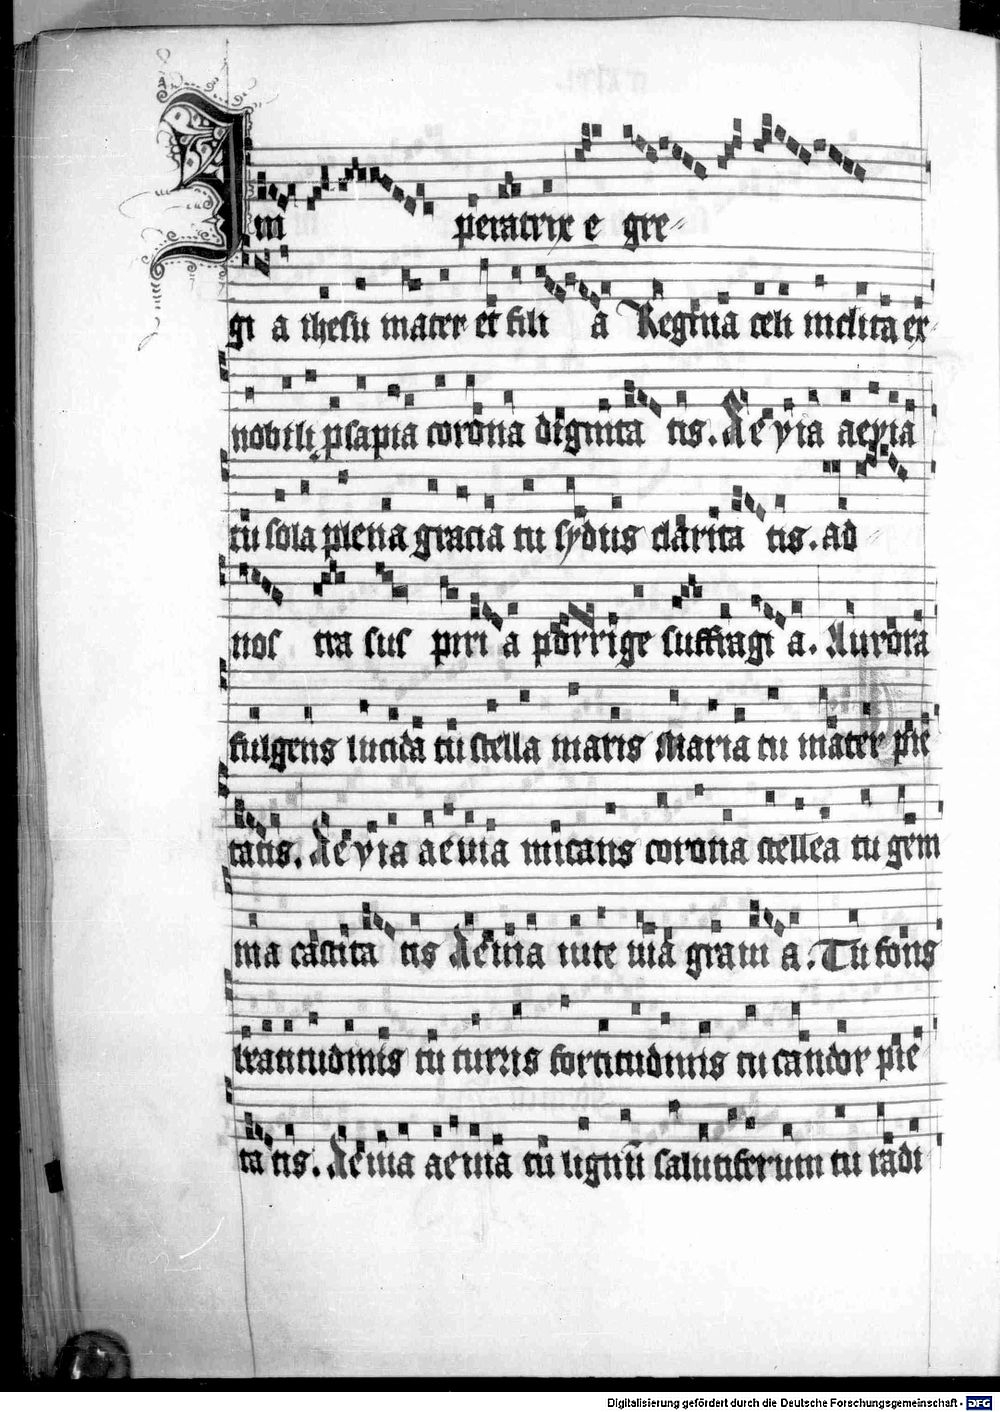 Im peratrix e gre-
gi a ihesu mater et fili a Regina celi inclita ex
nobili psapia corona dignita tis. Ae via aevia
tu sola plena gracia tu sydus clarita tis. ad-
nos tra sus piri a porrige suffragi a. Aurora
fulgens lucida tu stella maris Maria tu mater pie
tatis. Ae via aevia micans corona stellea tu gem
ma castita tis Aevia iure via gravi a. Tu fons
beatitudinis tu turris fortitudinis tu candor pie
ta tis. Aevia aevia tu lignū salutiferum tu radi
Digitalisierung gefördert durch die Deutsche Forschungsgemeinschaft - DFG